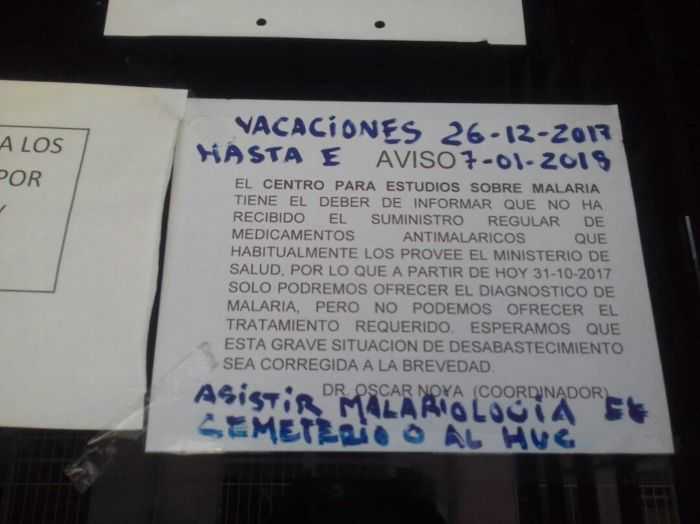 A LOS
POR
Y
VACACIONES 26-12-2017
HASTA E AVISO 7-01-2018
EL CENTRO PARA ESTUDIOS SOBRE MALARIA
TIENE EL DEBER DE INFORMAR QUE NO HA
RECIBIDO EL SUMINISTRO REGULAR DE
MEDICAMENTOS ANTIMALARICOS QUE
HABITUALMENTE LOS PROVEE EL MINISTERIO DE
SALUD, POR LO QUE A PARTIR DE HOY 31-10-2017
SOLO PODREMOS OFRECER EL DIAGNOSTICO DE
MALARIA, PERO NO PODEMOS OFRECER EL
TRATAMIENTO REQUERIDO. ESPERAMOS QUE
ESTA GRAVE SITUACION DE DESABASTECIMIENTO
SEA CORREGIDA A LA BREVEDAD.
DR. OSCAR NOYA (COORDINADOR)
ASISTIR MALARIOLOGIA
CEMETERIO O AL HUC